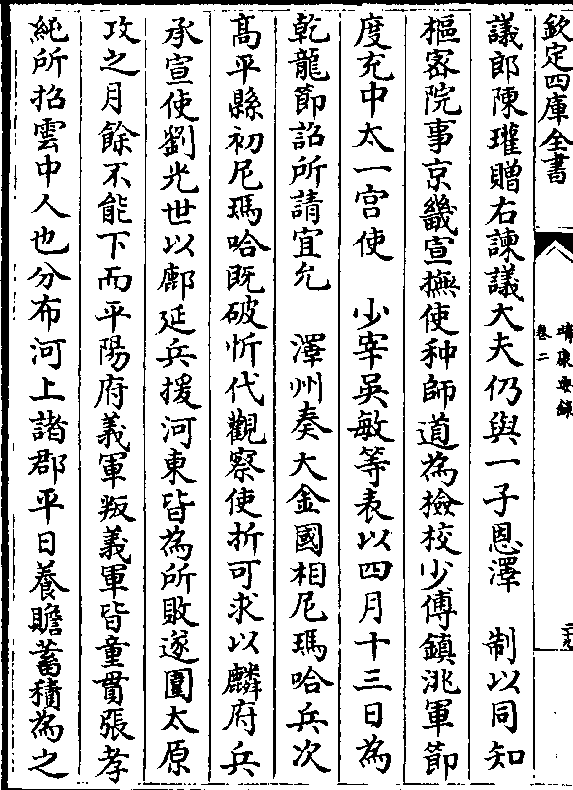 欽定四庫全書
靖康要錄
卷二
二九
議郎陳瓘贈右諫議大夫仍與一子恩澤　制以同知
樞宻院事京畿宣撫使种師道為檢校少傅鎮洮軍節
度充中太一宫使　少宰吳敏等表以四月十三日為
乾龍節詔所請宜允　澤州奏大金國相尼瑪哈兵次
髙平縣初尼瑪哈既破忻代觀察使折可求以麟府兵
承宣使劉光世以鄜延兵援河東皆為所敗遂圍太原
攻之月餘不能下而平陽府義軍叛義軍皆童貫張孝
純所招雲中人也分布河上諸郡平日養贍蓄積為之